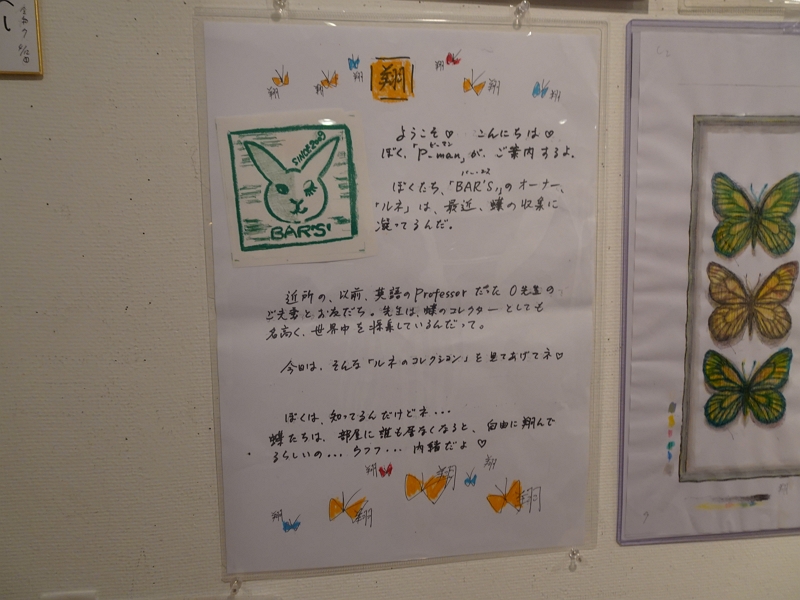 翔
翔
翔
翔
翔
翔
翔
ようこそ♡ こんにちは♡
ぼく、「P-man」が、ご案内するよ。
ピーマン
ぼくたち、「BAR'S'」のオーナー、
「ルネ」は、最近、蝶の収集に
凝ってるんだ。
SINCE 2009
BAR'S'
近所の、以前、英語のProfessorだった O先生の
ご夫妻とお友だち。先生は、蝶のコレクターとしても
名高く、世界中を採集しているんだって。
今日は、そんな「ルネのコレクション」を見てあげてネ♡
ぼくは、知ってるんだけどネ・・・
蝶たちは、部屋に誰も居なくなると、自由に翔んで
るらしいの・・・ウフフ・・・内緒だよ♡
翔
翔
翔
翔
翔
翔